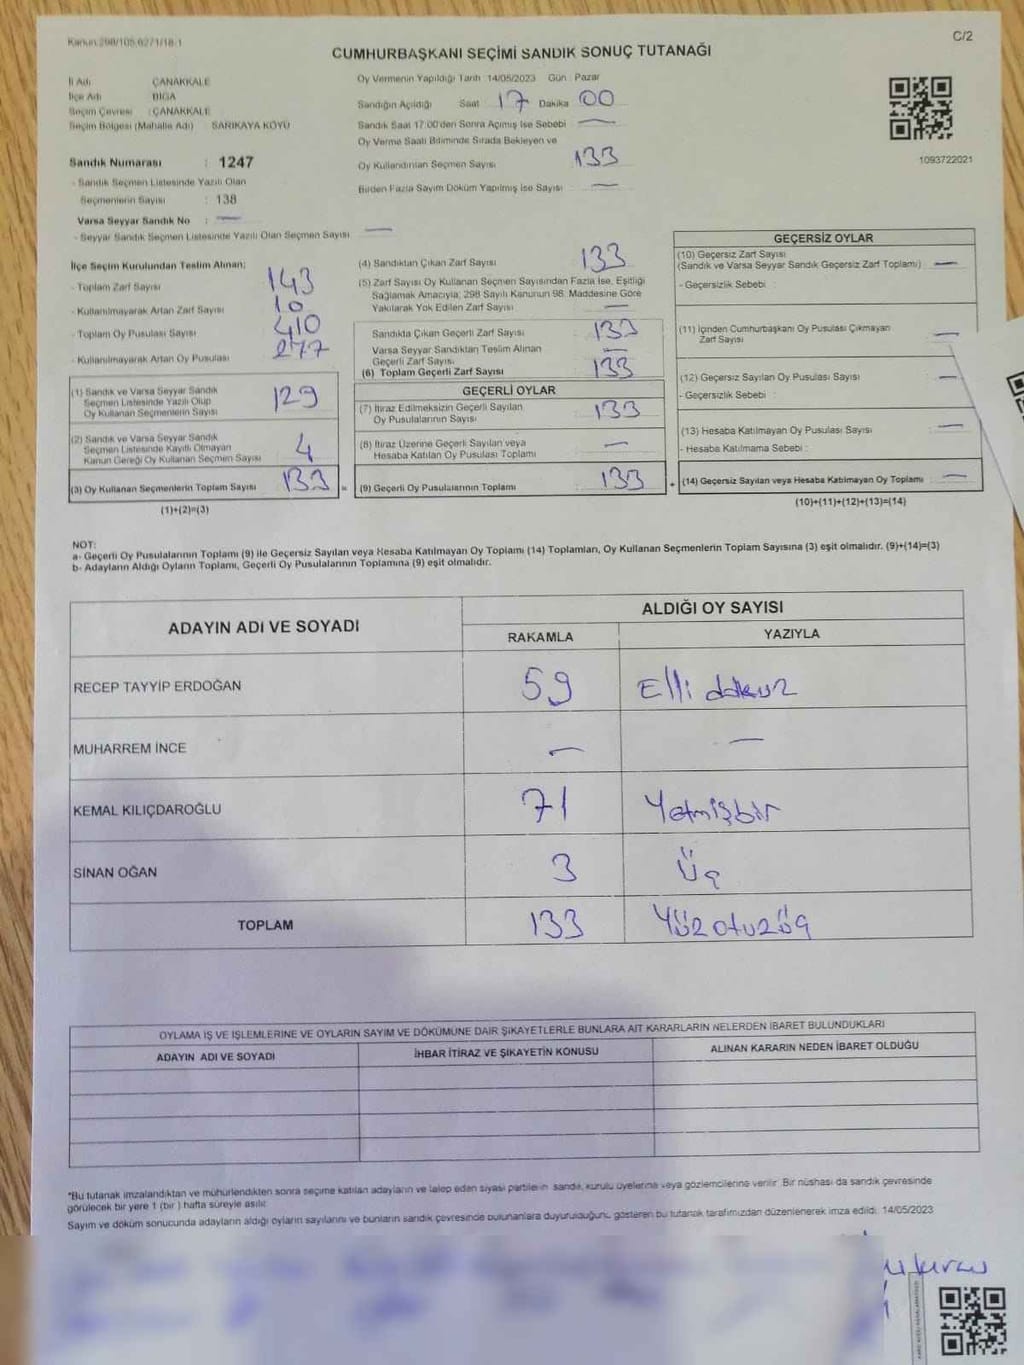 Kanun:298/105,6271/18-1
C/2
CUMHURBAŞKANI SEÇİMİ SANDIK SONUÇ TUTANAĞI
İl Adı : ÇANAKKALE
İlçe Adı : BİGA
Seçim Çevresi : ÇANAKKALE
Seçim Bölgesi (Mahalle Adı) : SARIKAYA KÖYÜ
Sandık Numarası : 1247
- Sandık Seçmen Listesinde Yazılı Olan
Seçmenlerin Sayısı : 138
Varsa Seyyar Sandık No : —
- Seyyar Sandık Seçmen Listesinde Yazılı Olan Seçmen Sayısı : —
Oy Vermenin Yapıldığı Tarih :14/05/2023 Gün : Pazar
Sandığın Açıldığı Saat 17 Dakika 00
Sandık Saat 17:00'den Sonra Açılmış İse Sebebi : —
Oy Verme Saati Bitiminde Sırada Bekleyen ve
Oy Kullandırılan Seçmen Sayısı : 133
Birden Fazla Sayım Döküm Yapılmış İse Sayısı : —
1093722021
İlçe Seçim Kurulundan Teslim Alınan:
- Toplam Zarf Sayısı : 143
- Kullanılmayarak Artan Zarf Sayısı : 10
- Toplam Oy Pusulası Sayısı : 410
- Kullanılmayarak Artan Oy Pusulası : 277
(1) Sandık ve Varsa Seyyar Sandık
Seçmen Listesinde Yazılı Olup
Oy Kullanan Seçmenlerin Sayısı : 129
(2) Sandık ve Varsa Seyyar Sandık
Seçmen Listesinde Kayıtlı Olmayan
Kanun Gereği Oy Kullanan Seçmen Sayısı : 4
(3) Oy Kullanan Seçmenlerin Toplam Sayısı : 133 =
(1)+(2)=(3)
(4) Sandıktan Çıkan Zarf Sayısı : 133
(5) Zarf Sayısı Oy Kullanan Seçmen Sayısından Fazla İse, Eşitliği
Sağlamak Amacıyla; 298 Sayılı Kanunun 98. Maddesine Göre
Yakılarak Yok Edilen Zarf Sayısı : —
Sandıkta Çıkan Geçerli Zarf Sayısı : 133
Varsa Seyyar Sandıktan Teslim Alınan
Geçerli Zarf Sayısı : —
(6) Toplam Geçerli Zarf Sayısı : 133
GEÇERLİ OYLAR
(7) İtiraz Edilmeksizin Geçerli Sayılan
Oy Pusulalarının Sayısı : 133
(8) İtiraz Üzerine Geçerli Sayılan veya
Hesaba Katılan Oy Pusulası Toplamı : —
(9) Geçerli Oy Pusulalarının Toplamı : 133 +
GEÇERSİZ OYLAR
(10) Geçersiz Zarf Sayısı
(Sandık ve Varsa Seyyar Sandık Geçersiz Zarf Toplamı) : —
- Geçersizlik Sebebi :
(11) İçinden Cumhurbaşkanı Oy Pusulası Çıkmayan
Zarf Sayısı : —
(12) Geçersiz Sayılan Oy Pusulası Sayısı : —
- Geçersizlik Sebebi :
(13) Hesaba Katılmayan Oy Pusulası Sayısı : —
- Hesaba Katılmama Sebebi :
(14) Geçersiz Sayılan veya Hesaba Katılmayan Oy Toplamı : —
(10)+(11)+(12)+(13)=(14)
NOT:
a- Geçerli Oy Pusulalarının Toplamı (9) ile Geçersiz Sayılan veya Hesaba Katılmayan Oy Toplamı (14) Toplamları, Oy Kullanan Seçmenlerin Toplam Sayısına (3) eşit olmalıdır. (9)+(14)=(3)
b- Adayların Aldığı Oyların Toplamı, Geçerli Oy Pusulalarının Toplamına (9) eşit olmalıdır.
ADAYIN ADI VE SOYADI
ALDIĞI OY SAYISI
RAKAMLA YAZIYLA
RECEP TAYYİP ERDOĞAN 59 Elli dokuz
MUHARREM İNCE — —
KEMAL KILIÇDAROĞLU 71 Yetmişbir
SİNAN OĞAN 3 Üç
TOPLAM 133 Yüzotuzüç
OYLAMA İŞ VE İŞLEMLERİNE VE OYLARIN SAYIM VE DÖKÜMÜNE DAİR ŞİKAYETLERLE BUNLARA AİT KARARLARIN NELERDEN İBARET BULUNDUKLARI
ADAYIN ADI VE SOYADI İHBAR İTİRAZ VE ŞİKAYETİN KONUSU ALINAN KARARIN NEDEN İBARET OLDUĞU
*Bu tutanak imzalandıktan ve mühürlendikten sonra seçime katılan adayların ve talep eden siyasi partilerin sandık kurulu üyelerine veya gözlemcilerine verilir. Bir nüshası da sandık çevresinde
görülecek bir yere 1 (bir ) hafta süreyle asılır.
Sayım ve döküm sonucunda adayların aldığı oyların sayılarını ve bunların sandık çevresinde bulunanlara duyurulduğunu gösteren bu tutanak tarafımızdan düzenlenerek imza edildi. 14/05/2023